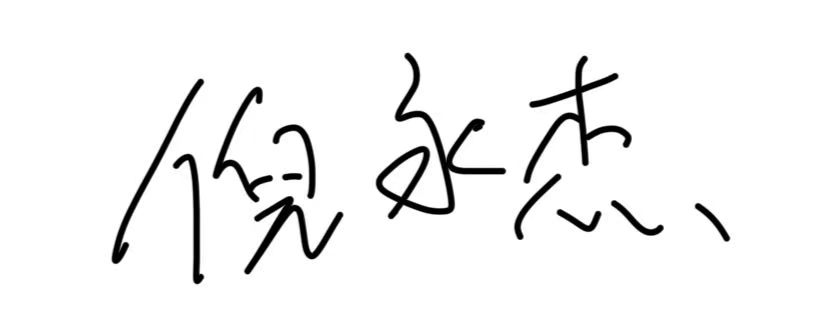 倪永杰